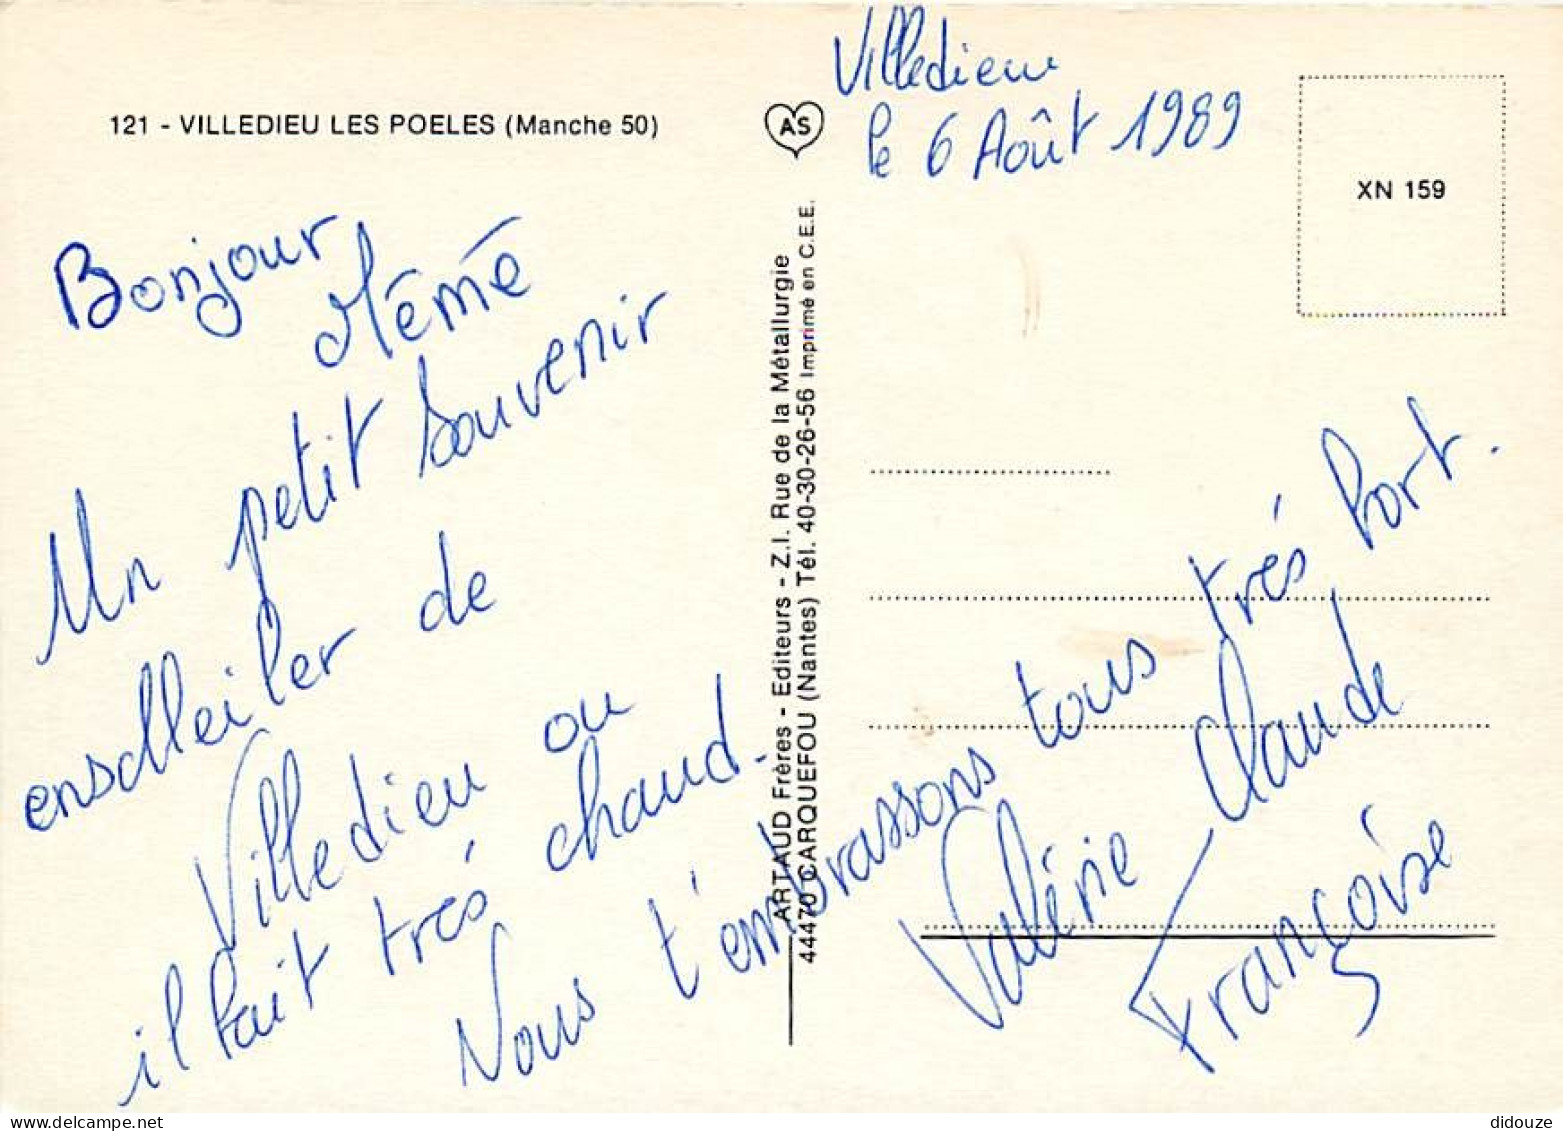 121 - VILLEDIEU LES POELES (Manche 50)
Bonjour
Mémé
Un petit souvenir
ensolleiler de
Villedieu ou
il fait trés chaud.
Nous t'embrassons tous trés fort.
Valérie Claude
Françoise
AS
ARTAUD Frères - Editeurs - Z.I. Rue de la Métallurgie
44470 CARQUEFOU (Nantes) Tél. 40-30-26-56 Imprimé en C.E.E.
Villedieu
le 6 Août 1989
XN 159
didouze